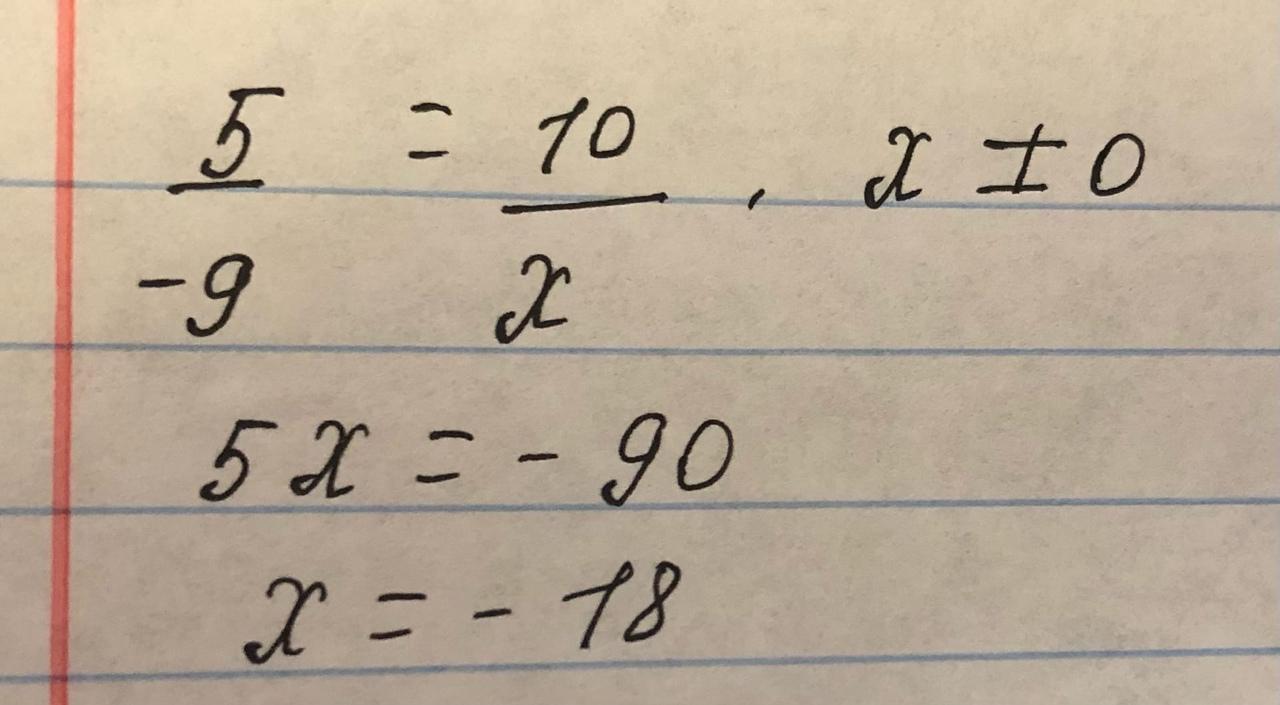 5/-9 = 10/x , x ± 0
5x = - 90
x = - 18